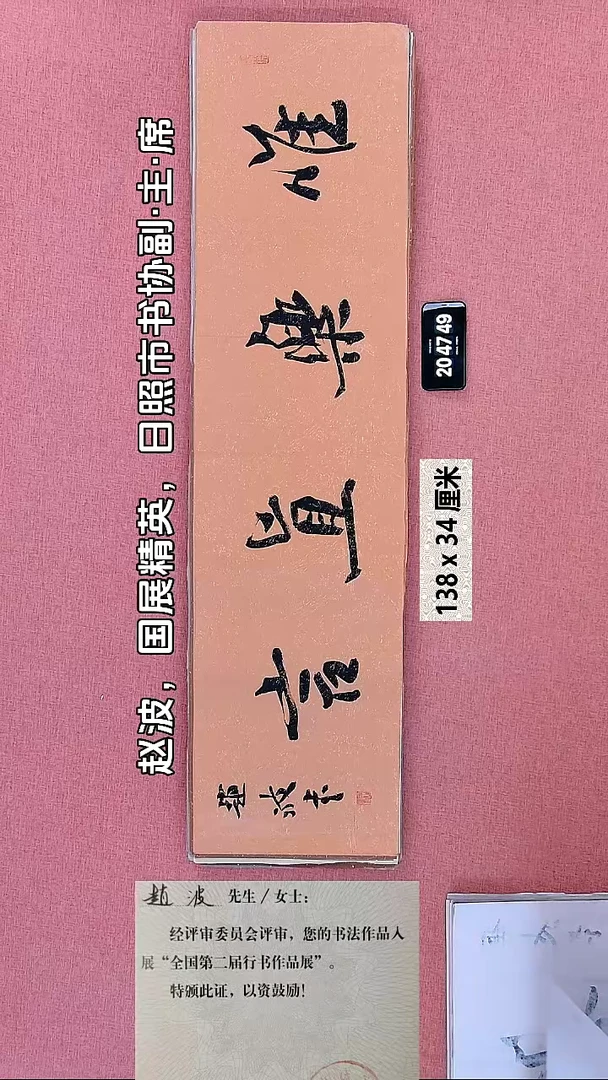 赵波，国展精英，日照市书协副·主·席
惟樂
趙波书
20 47 49
138 x 34 厘米
趙波 先生／女士：
经评审委员会评审，您的书法作品入
展“全国第二届行书作品展”。
特颁此证，以资鼓励！